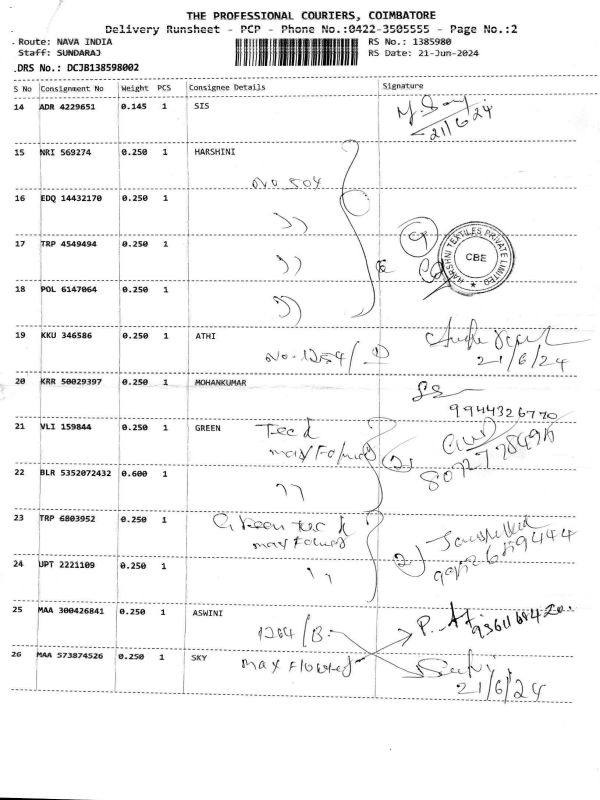 THE PROFESSIONAL COURIERS, COIMBATORE
Delivery Runsheet - PCP - Phone No.:0422-3505555 - Page No.:2
Route: NAVA INDIA RS No.: 1385980
Staff: SUNDARAJ RS Date: 21-Jun-2024
DRS No.: DCJB138598002
S No Consignment No Weight PCS Consignee Details Signature
14 ADR 4229651 0.145 1 SIS
21/6/24
15 NRI 569274 0.250 1 HARSHINI
No 504
16 EDQ 14432170 0.250 1
17 TRP 4549494 0.250 1
HARSHNI TEXTILES PRIVATE LIMITED
CBE
18 POL 6147064 0.250 1
19 KKU 346586 0.250 1 ATHI
No-1254/
21/6/24
20 KRR 50029397 0.250 1 MOHANKUMAR
9944326770
21 VLI 159844 0.250 1 GREEN
22 BLR 5352072432 0.600 1
23 TRP 6803952 0.250 1 Green
24 UPT 2221109 0.250 1
25 MAA 300426841 0.250 1 ASWINI
1264/B
26 MAA 573874526 0.250 1 SKY
max
21/6/24